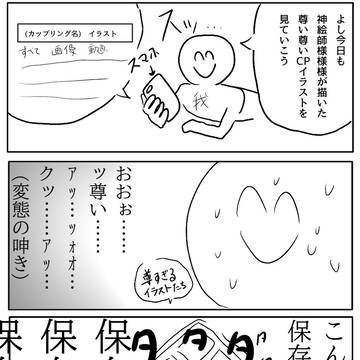 よし今日も
神絵師様様様が描いた
尊い尊いCPイラストを
見ていこう
スッ…
(カップリング名) イラスト
すべて 画像 動画
スマホ
我
おおぉ……
ッ尊い……
ァッ…ッォオ…
クッ……アッ…
(変態の呻き)
尊すぎる
イラストたち
こん
保存
タタダダ
保
保
保